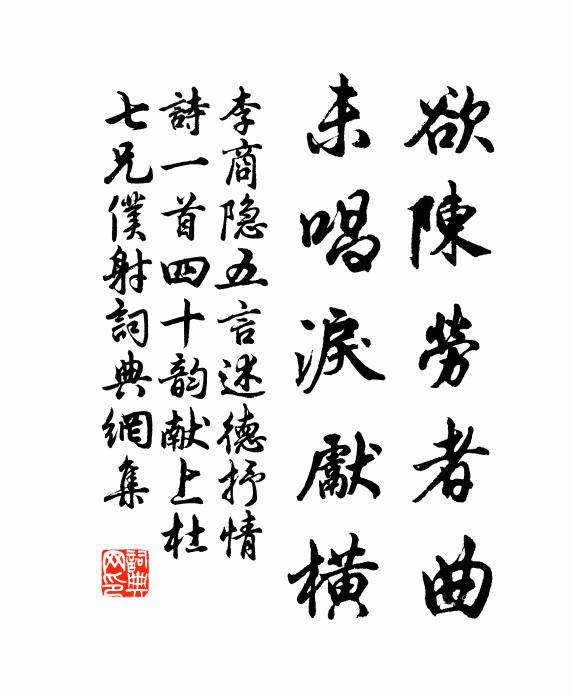 欲陳勞者曲
未唱淚獻橫
李商隐五言述德抒情
詩一首四十韵献上杜
七兄僕射詞典網集
詞典
网印